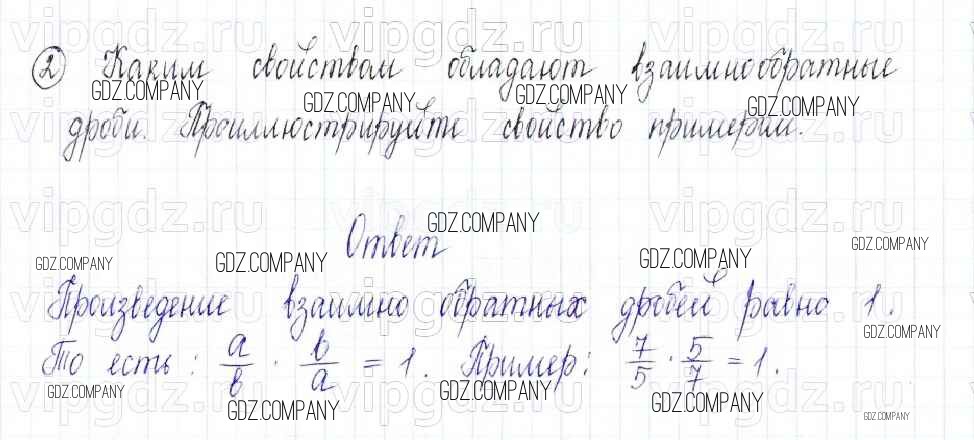 ② Каким свойством обладают взаимнообратные
дроби. Проиллюстрируйте свойство примерим.
Ответ
Произведение взаимно обратных дробей равно 1.
То есть: a/в · в/a = 1. Пример: 7/5 · 5/7 = 1.
vipgdz.ru vipgdz.ru vipgdz.ru
GDZ.COMPANY GDZ.COMPANY GDZ.COMPANY GDZ.COMPANY
vipgdz.ru vipgdz.ru vipgdz.ru
GDZ.COMPANY GDZ.COMPANY GDZ.COMPANY GDZ.COMPANY GDZ.COMPANY
GDZ.COMPANY
GDZ.COMPANY GDZ.COMPANY GDZ.COMPANY GDZ.COMPANY GDZ.COMPANY
vipgdz.ru vipgdz.ru vipgdz.ru